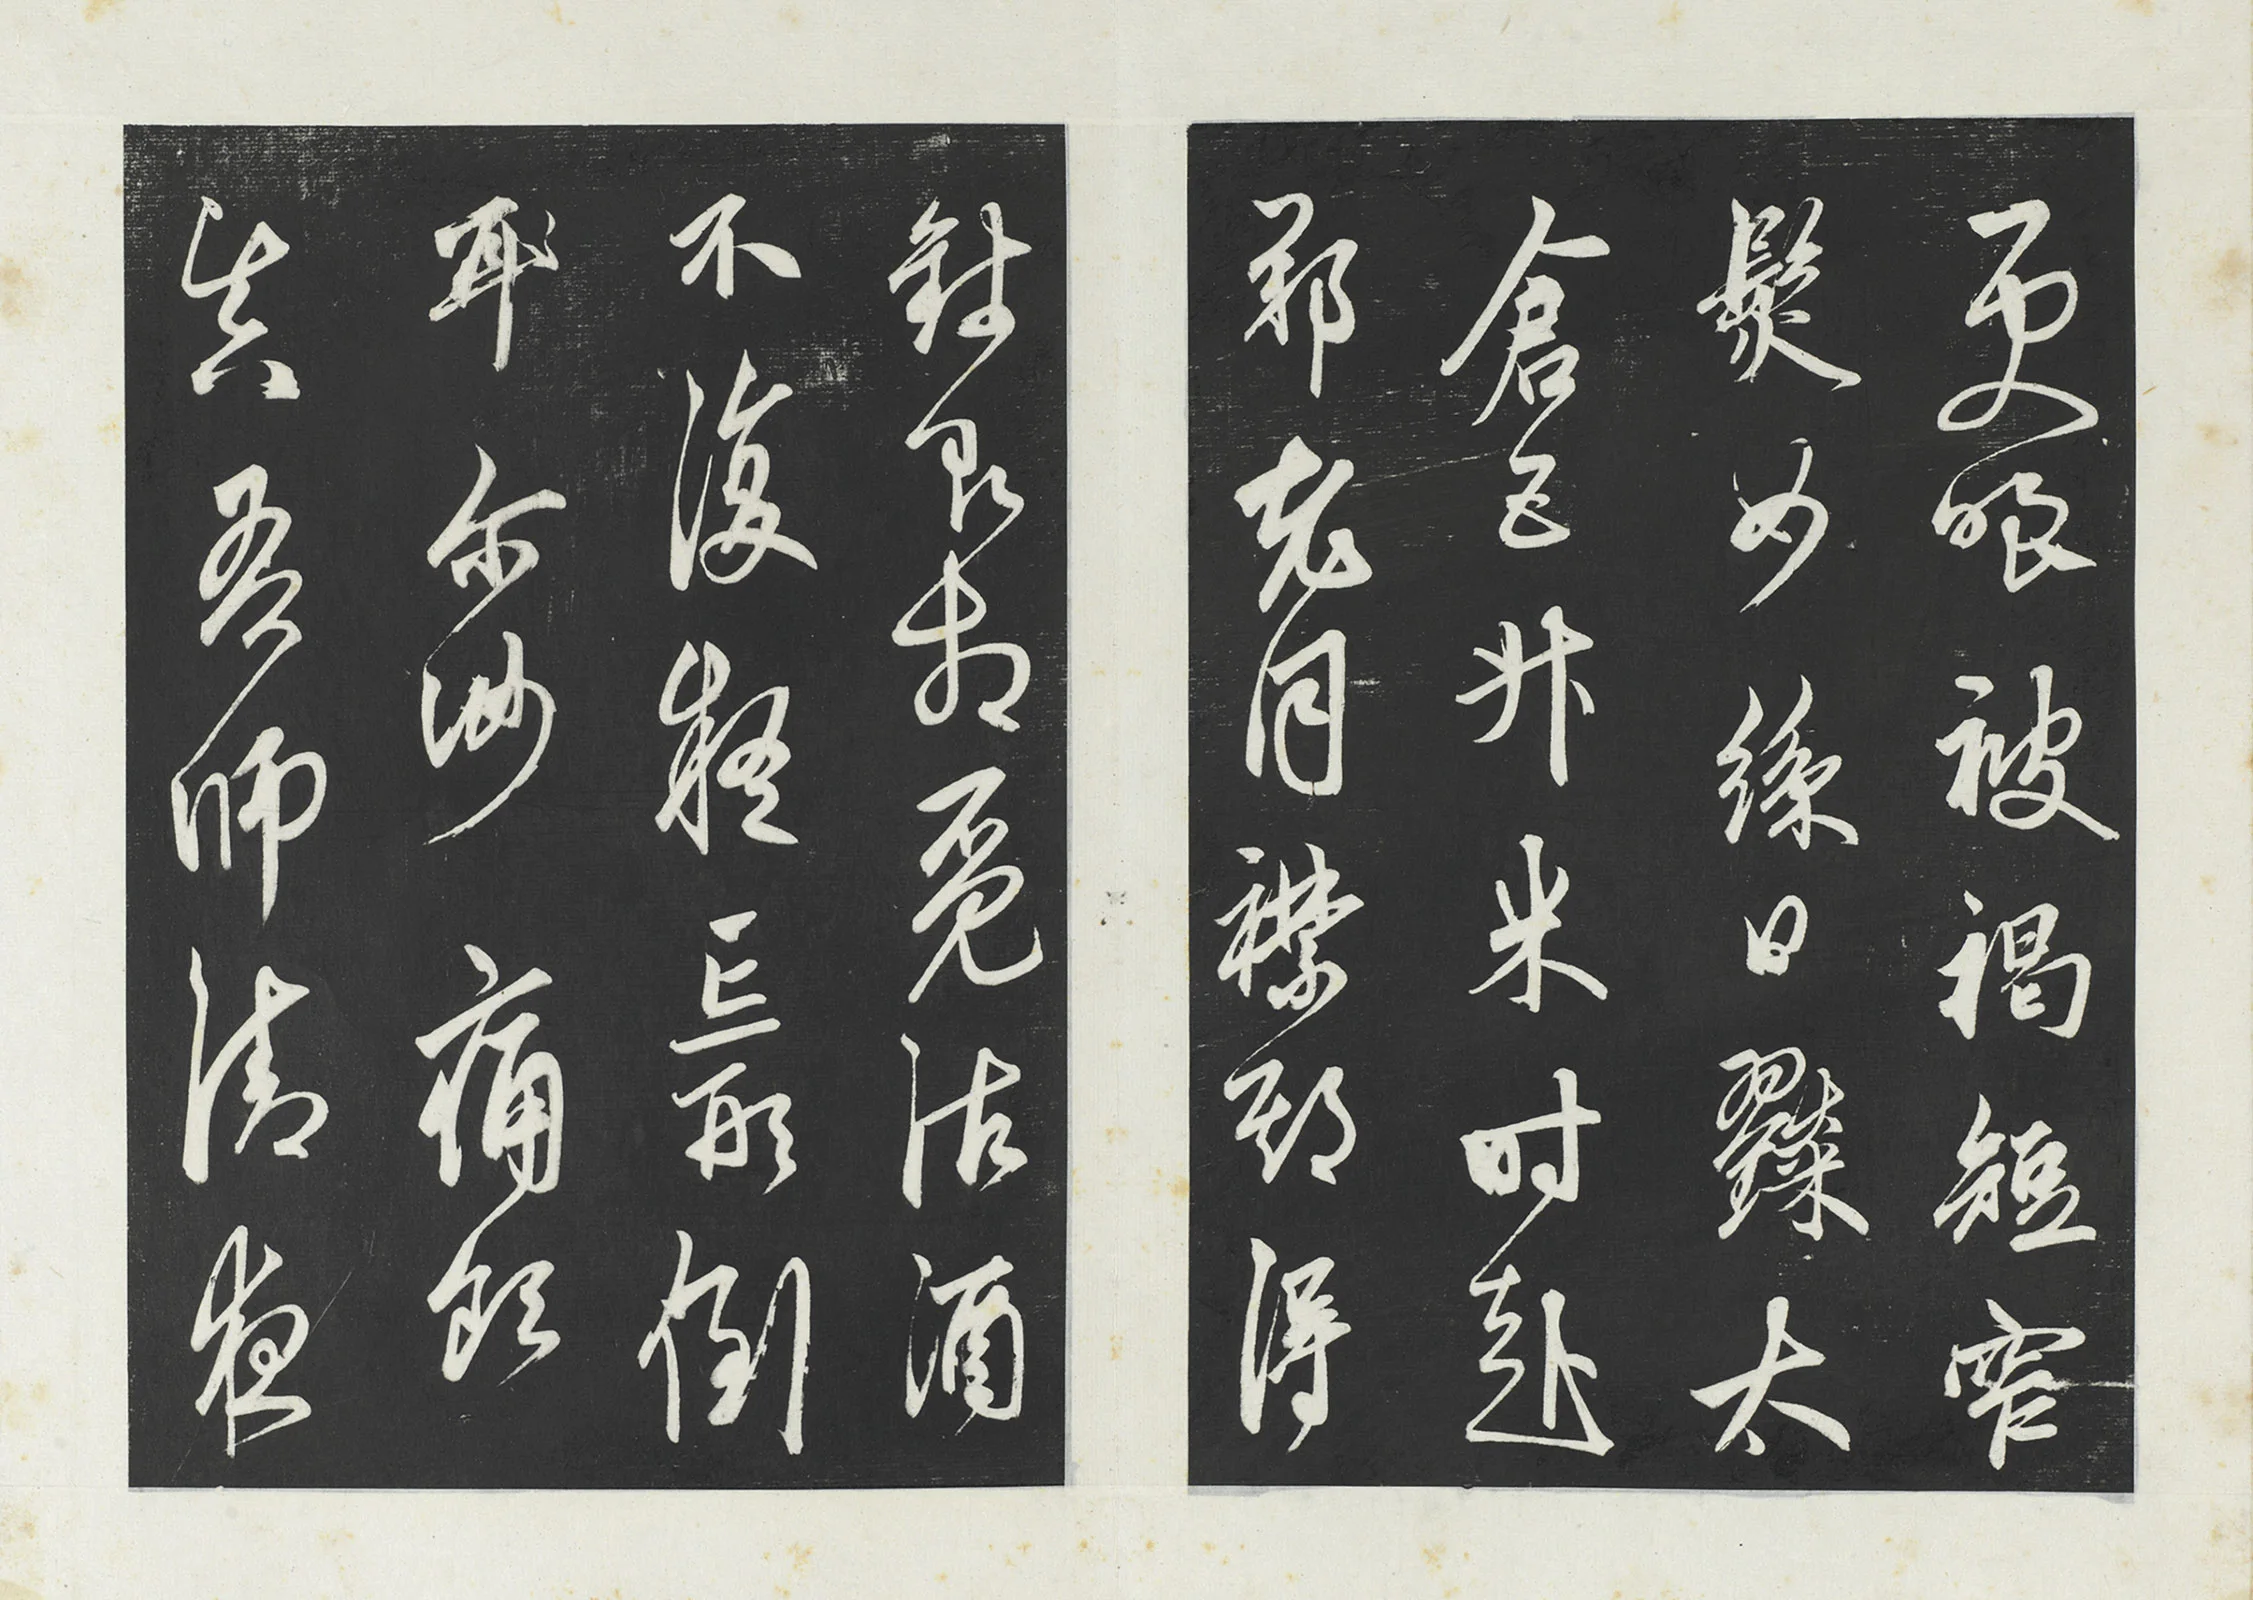 更嗤被褐短窄
鬢如絲日糴太
倉五升米時赴
鄭老同襟期得
錢即相覓沽酒
不復疑忘形倒
耳爾汝痛飲
真吾師清夜